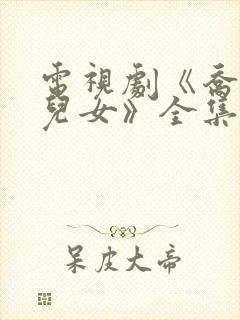 電視劇《喬
兒女》全集
呆皮大帝